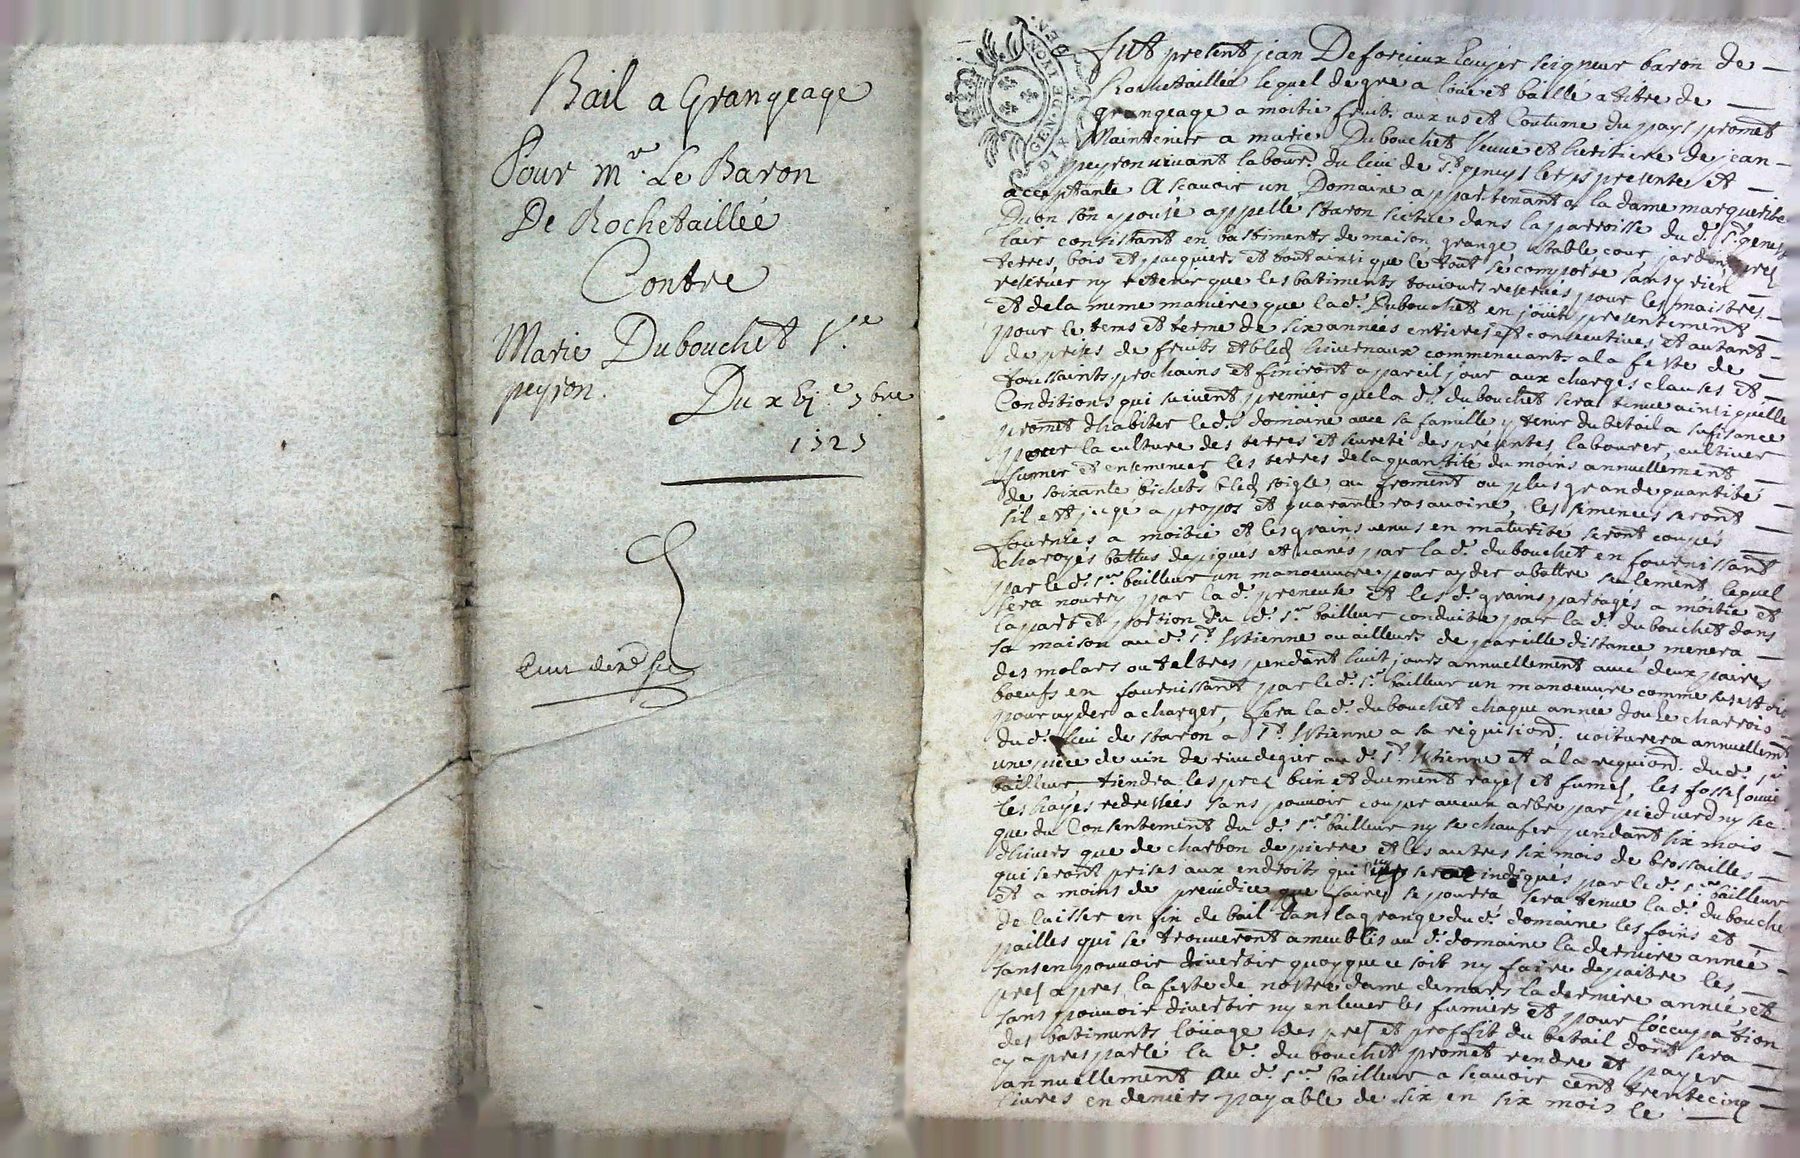 Bail a Grangeage
Pour mr. Le Baron
De Rochetaillée
Contre
Marie Dubouchet Ve.
peyron.
Du x 7bre
1727
GEN. DE LYON
DIX DEN.
fut present jean De forcieux Ecuyer seigneur baron de
Rochetaillée lequel de gre a loüé et baillé a titre de
grangeage a moitie fruit. aux us et Coutume du pays promet
Maintenir a marie Dubouchet veuve et heritiere de jean
peyron vivant labour. du lieu de st. geneys lerps presente et
acceptante A scavoir un Domaine appartenant a la dame marguerite
Duon son epouse appellé staron scitue dans la parroisse du d. st. genest
lair consistant en bastiments de maison, grange estable cour jardins prez
terres, bois et paquiers et tout ainsi que le tout se comporte sans y rien
reserver ny retenir que les batiments toujours reservés pour les maistres
et de la meme maniere que la d. Dubouchet en joüit presentement
pour le tems et terme de six années entieres et consecutives et autant
de prises de fruits et bled hivernaux commencants a la feste de
toussaints prochains et finiront a pareil jour aux charges clauses et
Conditions qui suivent premier que la d. dubouchet sera tenue ainsi quelle
promet dhabiter le d. domaine avec sa famille y tenir du betail a sufisance
pour la culture des terres et seureté des presentes, labourer, cultiver
fumer et ensemencer les terres de la quantité du moins annuellement
de soixante bichets bled seigle ou froment ou plus grande quantité
sil est juge a propos et quarante ras avoine, les semences seront
fournies a moitié et les grains venus en maturité seront coupés
charoyés battus depiqués et vanés par la d. dubouchet en fournissant
par le d. sr. bailleur un manoeuvre pour ayder a battre seulement lequel
sera nourry par la d. preneuse et les d. grains partagés a moitié et
la part et portion du d. sr. bailleur conduite par la d. dubouchet dans
sa maison au d. st. Estienne ou ailleurs de pareille distance menera
des molars ou teltres pendant huit jours annuellement avec deux paires
boeufs en fournissant par le d. sr. bailleur un manoeuvre comme
pour ayder a charger, fera la d. dubouchet chaque année douze charrois
du d. lieu de staron a st. Estienne a sa requisiond. voiturera annuellemt
une piece de vin de rive de gier au d. st. Estienne et à la requiond. du d. sr
bailleur, tiendra les prez bien et duement rayés et fumés, les fossez
les hayes redressées sans pouvoir couper aucun arbre par pied verd ny sec
que du Consentement du d. sr. bailleur ny se chaufer pendant six mois
dhivers que de charbon de pierre et les autres six mois de brossailles
qui seront prises aux endroits qui indiqués par le d. sr. bailleur
et a moins de prejudice que faire se pourra sera tenue la d. dubouche
de laisser en fin de bail dans la grange du d. domaine les foins et
pailles qui se trouveront ameublis au d. domaine la derniere année
sans en pouvoir divertir quoyque ce soit ny faire depaitre les
prez apres la feste de nostre dame de mars la derniere année et
sans pouvoir divertir ny enlever les fumiers et pour loccupation
des batiments loüage des prez et proffit du betail dont sera
cy apres parlé la d. dubouchet promet rendre et payer
annuellement Au d. sr. bailleur a scavoir cent trente cinq
livres en deniers payable de six en six mois le